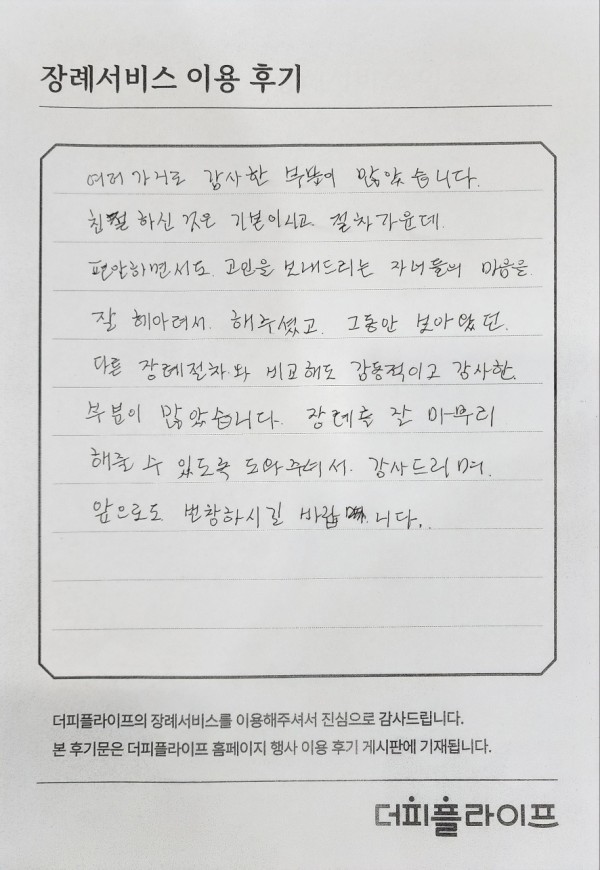 장례서비스 이용 후기
여러가지로 감사한 부분이 많았습니다.
친절하신 것은 기본이시고. 절차가운데.
편안하면서도. 고인을 보내드리는 자녀들의 마음을
잘 헤아려서. 해주셨고. 그동안 보아왔던.
다른 장례절차와 비교해도 감동적이고 감사한.
부분이 많았습니다. 장례를 잘 마무리
해줄 수 있도록 도와주셔서. 감사드리며.
앞으로도 번창하시길 바랍니다.
더피플라이프의 장례서비스를 이용해주셔서 진심으로 감사드립니다.
본 후기문은 더피플라이프 홈페이지 행사 이용 후기 게시판에 기재됩니다.
더피플라이프